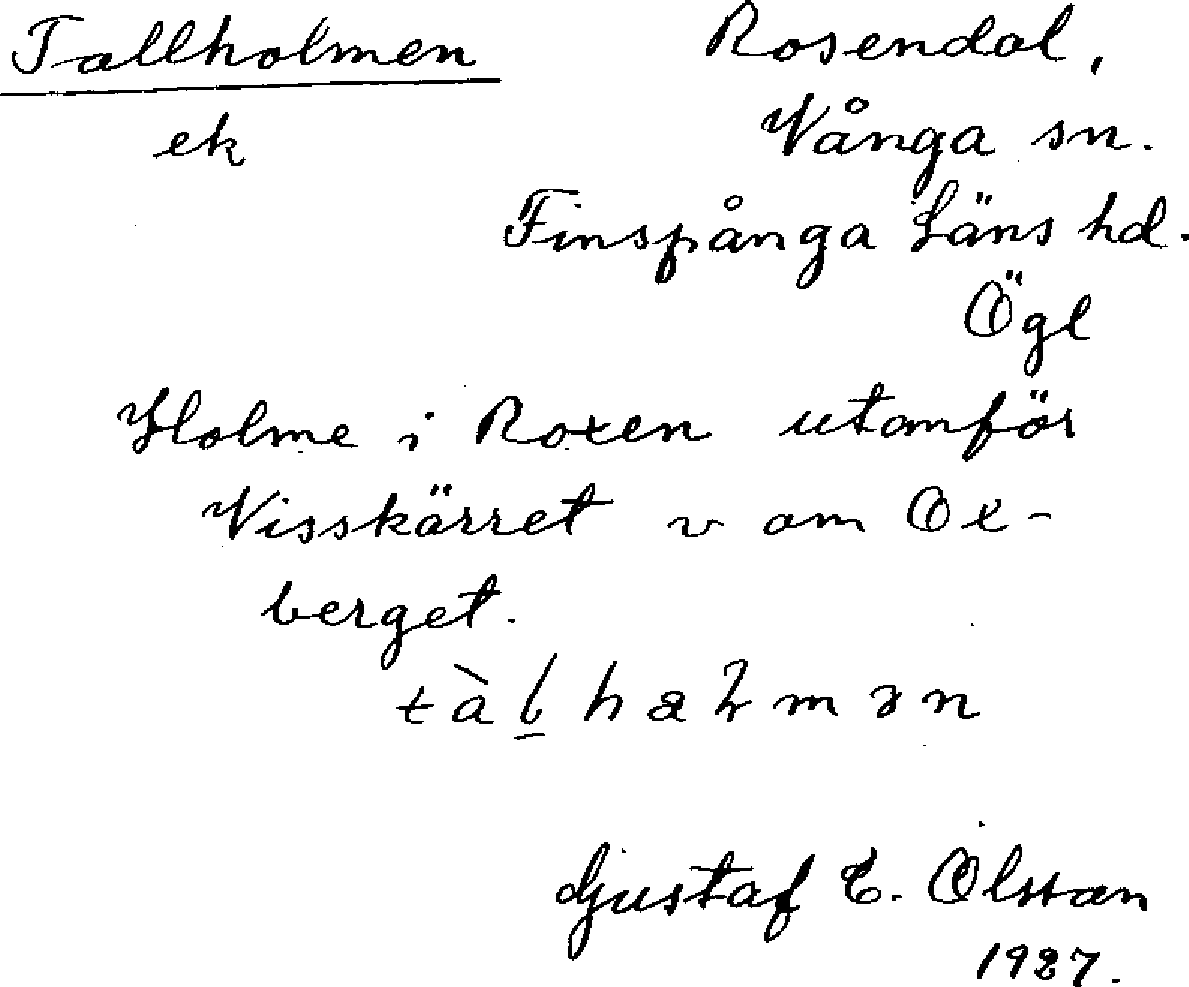 Tallholmen Rosendal,
ek Vånga sn.
Finspånga Läns hd.
Ögl
Holme i Roxen utanför
Visskärret v om Ox-
berget.
Gustaf E. Olsson
1927.